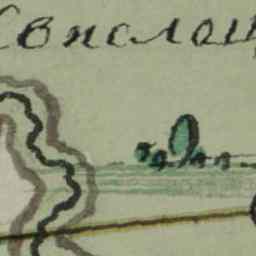 Свислощ